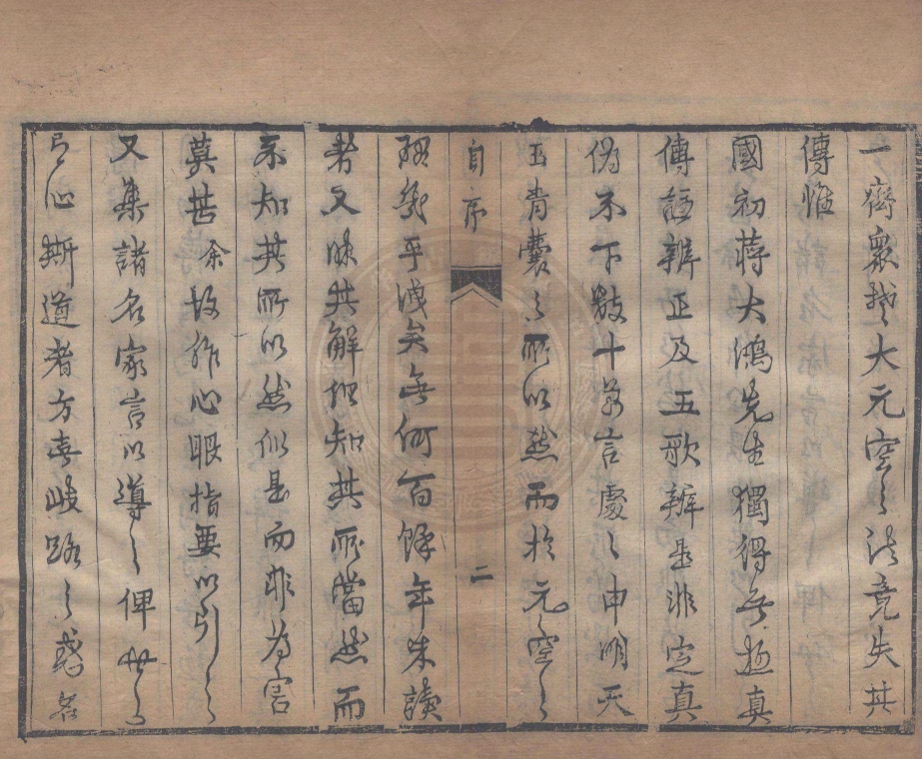 一齊眾楚大元空之法竟失其
傳惟
國初蔣大鴻先生獨得無極真
傳辨正及五歌辨是非定真
偽不下數十萬言處々申明天
玉青囊之所以然而於元空之
自序
二
秘幾乎洩矣無何百餘年來讀
者又昧其解但知其所當然而
不知其所以然似是而非為害
莫甚余故作心眼指要以引之
又集諸名家言以導之俾世之
有心斯道者方無岐路之惑名